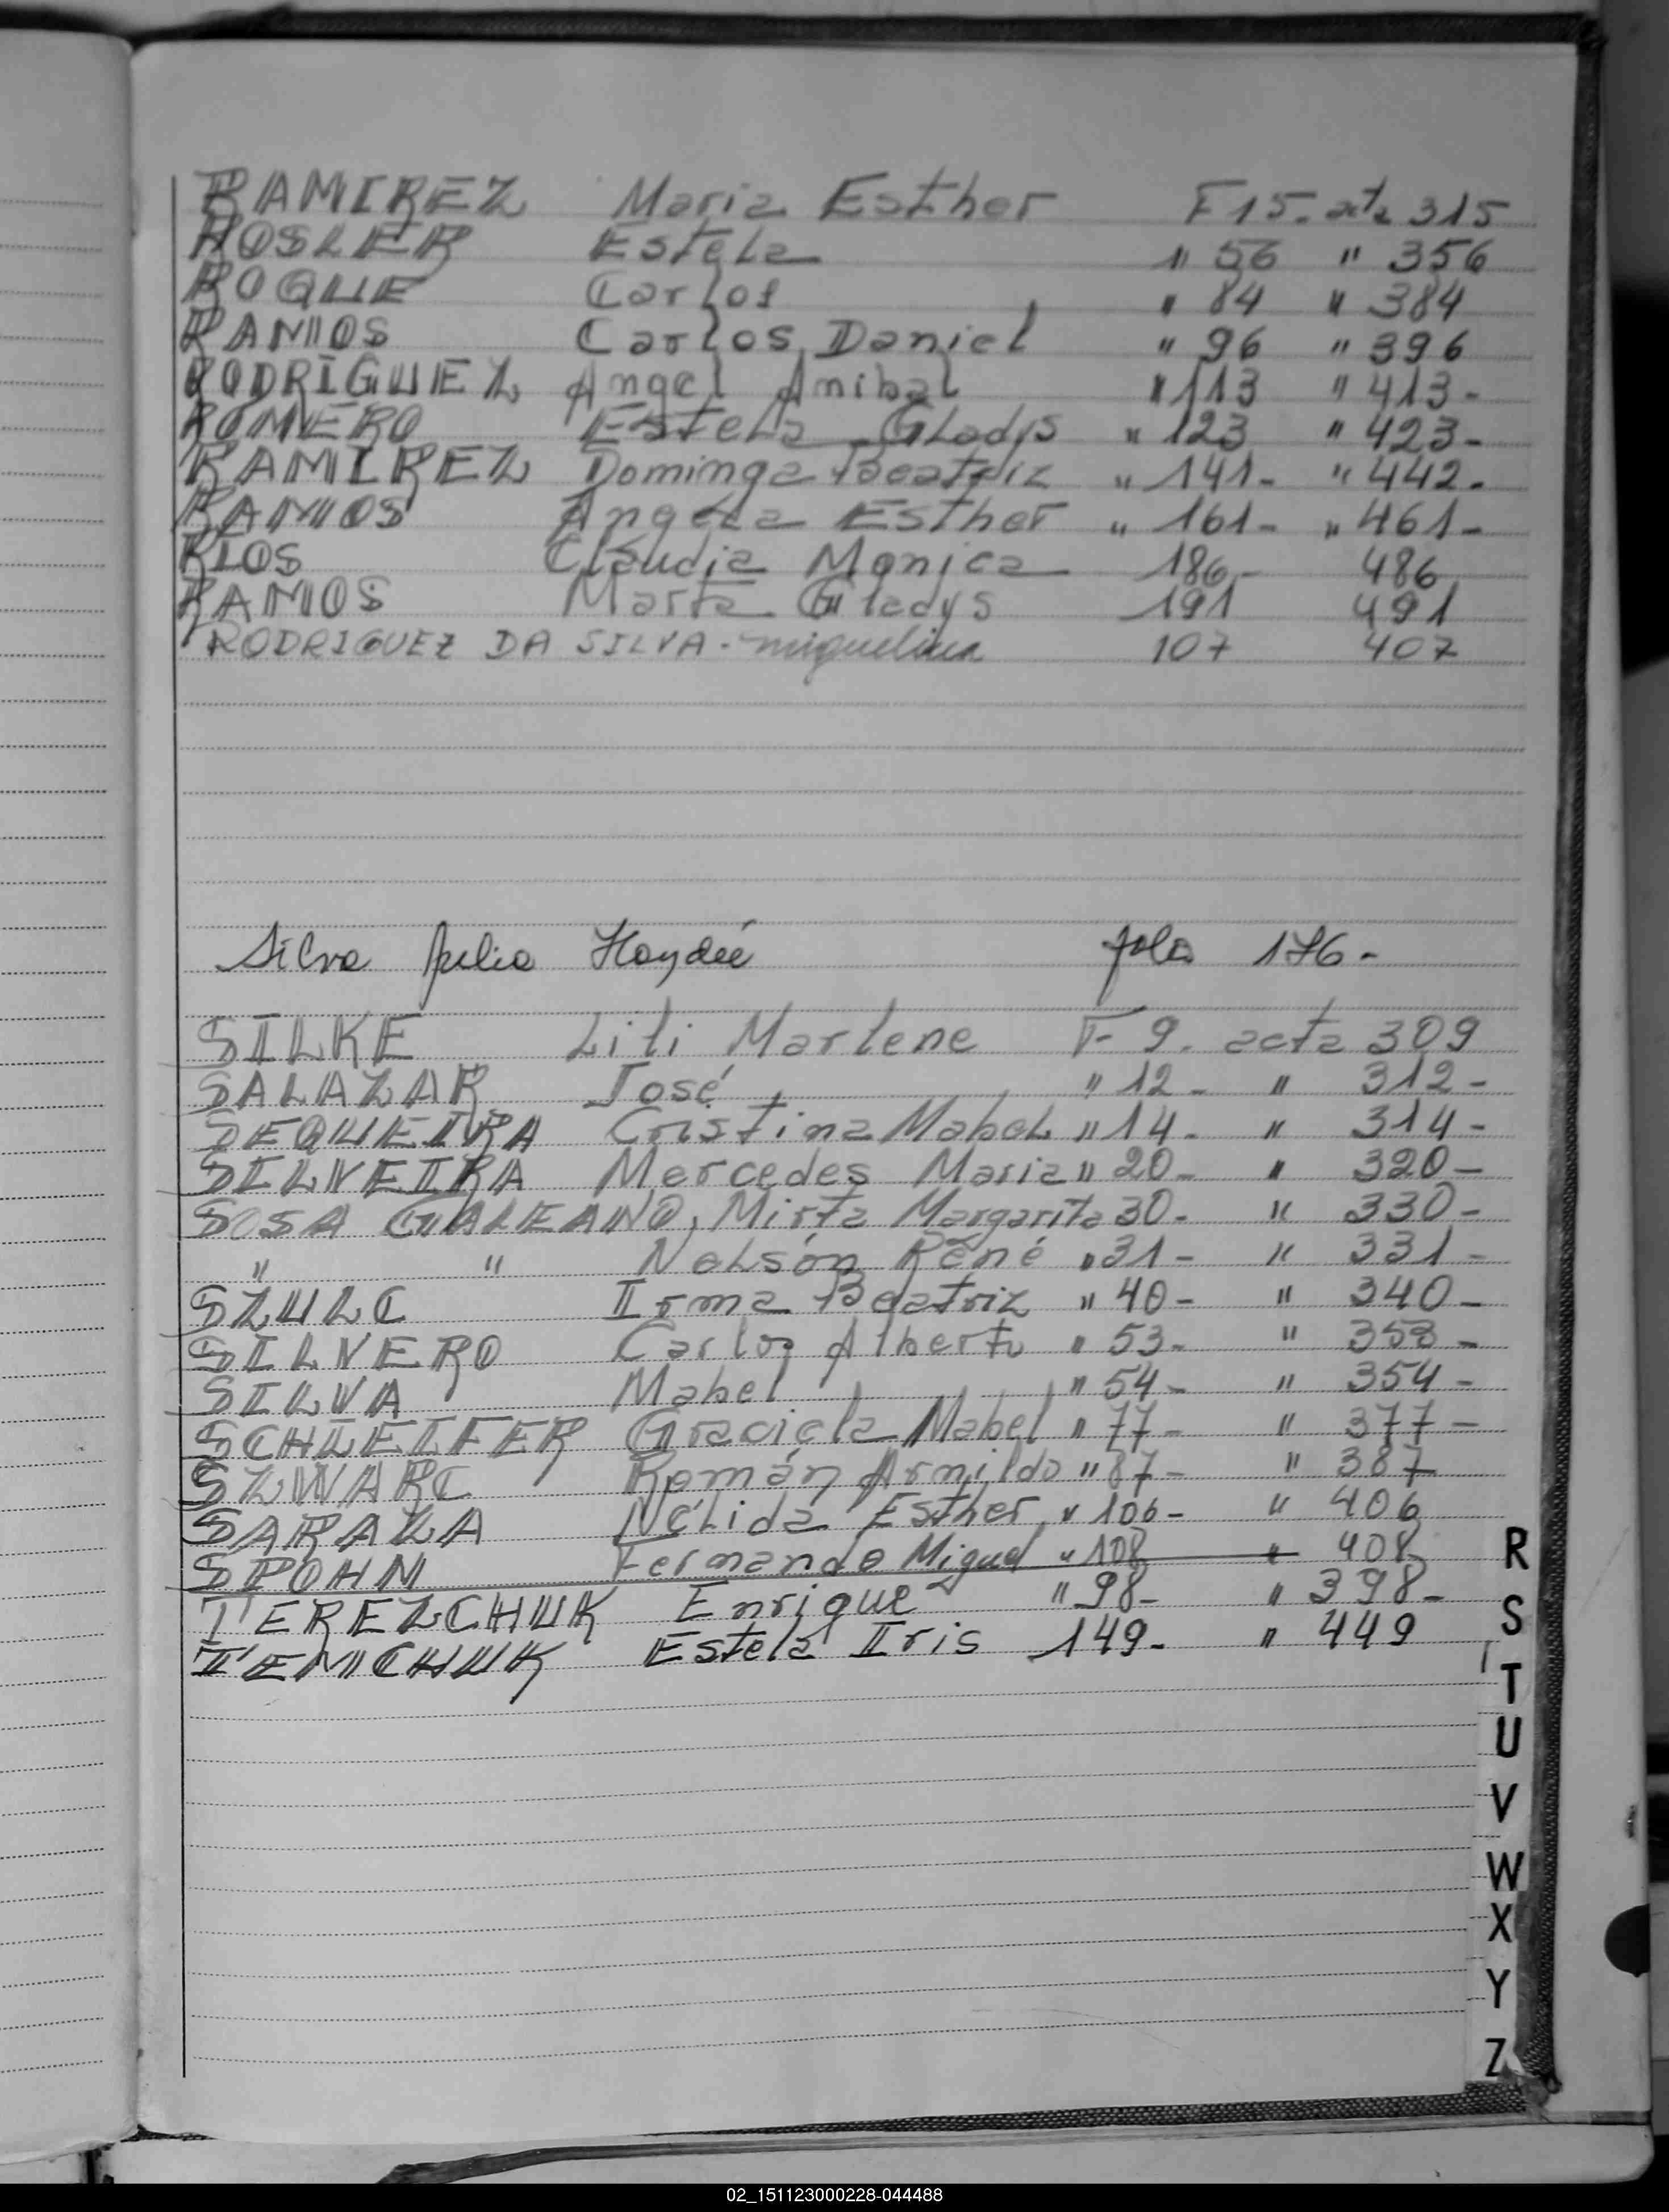 RAMIREZ Maria Esther F 15. acta 315
ROSLER Estela " 56 " 356
ROQUE Carlos " 84 " 384
RAMOS Carlos Daniel " 96 " 396
RODRIGUEZ Angel Anibal " 113 " 413-
ROMERO Estela Gladys " 123 " 423-
RAMIREZ Dominga Beatriz " 141- " 442-
RAMOS Angela Esther " 161- " 461-
RIOS Claudia Monica 186- 486
RAMOS Marta Gladys 191 491
RODRIGUEZ DA SILVA - Miguelina 107 407
Silva Julia Haydeé 176-
SILKE Lili Marlene F- 9. acta 309
SALAZAR José " 12- " 312-
SEQUEIRA Cristina Mabel " 14- " 314-
SILVEIRA Mercedes Maria " 20- " 320-
SOSA GALEANO, Mirta Margarita 30- " 330-
" " Nelsón René " 31- " 331-
SZULC Irma Beatriz " 40- " 340-
SILVERO Carlos Alberto " 53- " 353-
SILVA Mabel " 54- " 354-
SCHIEIFER Graciela Mabel " 77- " 377-
SZWARC Román Arnildo " 87- " 387
SARAZA Nélida Esther " 106- " 406
SPOHN Fernando Miguel " 108 " 408
TEREZCHUK Enrique " 98- " 398-
TEMCHUK Estela Iris 149- " 449
R
S
T
U
V
W
X
Y
Z
02_151123000228-044488